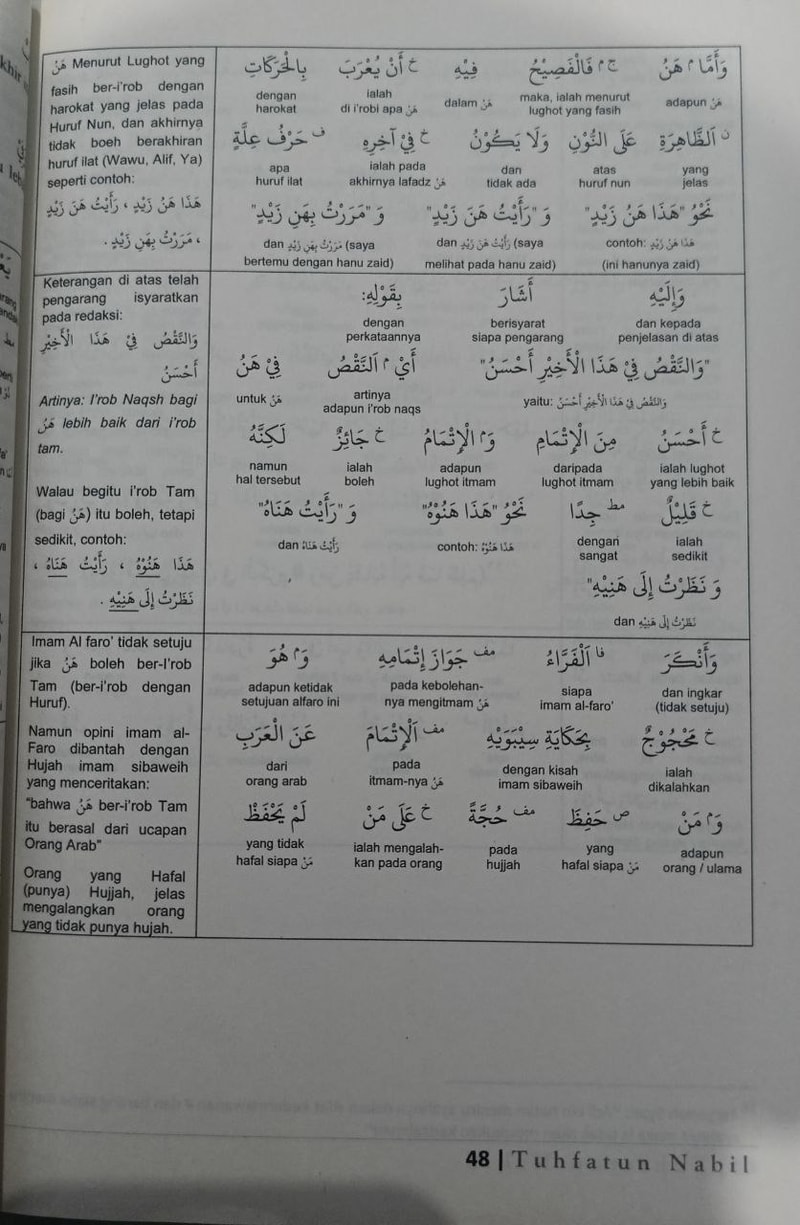 هَنٌ Menurut Lughot yang
fasih ber-i'rob dengan
harokat yang jelas pada
Huruf Nun, dan akhirnya
tidak boeh berakhiran
huruf ilat (Wawu, Alif, Ya)
seperti contoh:
هَذَا هَنُ زَيْدٍ ، رَأَيْتُ هَنَ زَيْدٍ
، مَرَرْتُ بِهَنِ زَيْدٍ .
وَأَمَّا م هَنٌ ج م فَالْفَصِيْحُ فِيْهِ خ أَنْ يُعْرَبَ بِالْحَرَكَاتِ
adapun هَنٌ maka, ialah menurut lughot yang fasih dalam هَنٌ ialah di i'robi apa هَنٌ dengan harokat
ن اَلظَّاهِرَةِ عَلَى النُّوْنِ وَلَا يَكُوْنُ خ فِيْ آخِرِهِ ف حَرْفُ عِلَّةٍ
yang jelas atas huruf nun dan tidak ada ialah pada akhirnya lafadz هَنٌ apa huruf ilat
نَحْوُ "هَذَا هَنُ زَيْدٍ" وَ "رَأَيْتُ هَنَ زَيْدٍ" وَ "مَرَرْتُ بِهَنِ زَيْدٍ"
contoh: هَذَا هَنُ زَيْدٍ (ini hanunya zaid) dan رَأَيْتُ هَنَ زَيْدٍ (saya melihat pada hanu zaid) dan مَرَرْتُ بِهَنِ زَيْدٍ (saya bertemu dengan hanu zaid)
Keterangan di atas telah
pengarang isyaratkan
pada redaksi:
وَالنَّقْصُ فِيْ هَذَا الْأَخِيْرِ
أَحْسَنُ
Artinya: I'rob Naqsh bagi
هَنٌ lebih baik dari i'rob
tam.
Walau begitu i'rob Tam
(bagi هَنٌ) itu boleh, tetapi
sedikit, contoh:
هَذَا هَنُوْهُ ، رَأَيْتُ هَنَاهُ ،
نَظَرْتُ إِلَى هَنِيْهِ .
وَإِلَيْهِ أَشَارَ بِقَوْلِهِ:
dan kepada penjelasan di atas berisyarat siapa pengarang dengan perkataannya
"وَالنَّقْصُ فِيْ هَذَا الْأَخِيْرِ أَحْسَنُ" أَيْ م اَلنَّقْصُ فِيْ هَنٍ
yaitu: وَالنَّقْصُ فِيْ هَذَا الْأَخِيْرِ أَحْسَنُ artinya adapun i'rob naqs untuk هَنٌ
خ أَحْسَنُ مِنَ الْإِتْمَامِ وَ م الْإِتْمَامُ خ جَائِزٌ لَكِنَّهُ
ialah lughot yang lebih baik daripada lughot itmam adapun lughot itmam ialah boleh namun hal tersebut
خ قَلِيْلٌ مط جِدًّا نَحْوُ "هَذَا هَنُوْهُ" وَ "رَأَيْتُ هَنَاهُ"
ialah sedikit dengan sangat contoh: هَذَا هَنُوْهُ dan رَأَيْتُ هَنَاهُ
وَ نَظَرْتُ إِلَى هَنِيْهِ"
dan نَظَرْتُ إِلَى هَنِيْهِ
Imam Al faro' tidak setuju
jika هَنٌ boleh ber-I'rob
Tam (ber-i'rob dengan
Huruf).
Namun opini imam al-
Faro dibantah dengan
Hujah imam sibaweih
yang menceritakan:
"bahwa هَنٌ ber-i'rob Tam
itu berasal dari ucapan
Orang Arab"
Orang yang Hafal
(punya) Hujjah, jelas
mengalangkan orang
yang tidak punya hujah.
وَأَنْكَرَ فا اَلْفَرَّاءُ مف جَوَازَ إِتْمَامِهِ وَ م هُوَ
dan ingkar (tidak setuju) siapa imam al-faro' pada kebolehan-nya mengitmam هَنٌ adapun ketidak setujuan alfaro ini
خ مَحْجُوْجٌ بِحِكَايَةِ سِيْبَوَيْهِ مف اَلْإِتْمَامَ عَنِ الْعَرَبِ
ialah dikalahkan dengan kisah imam sibaweih pada itmam-nya هَنٌ dari orang arab
وَ م مَنْ ص حَفِظَ مف حُجَّةً خ عَلَى مَنْ لَمْ يَحْفَظْ
adapun orang / ulama yang hafal siapa مَنْ pada hujjah ialah mengalah-kan pada orang yang tidak hafal siapa مَنْ
48 | Tuhfatun Nabil